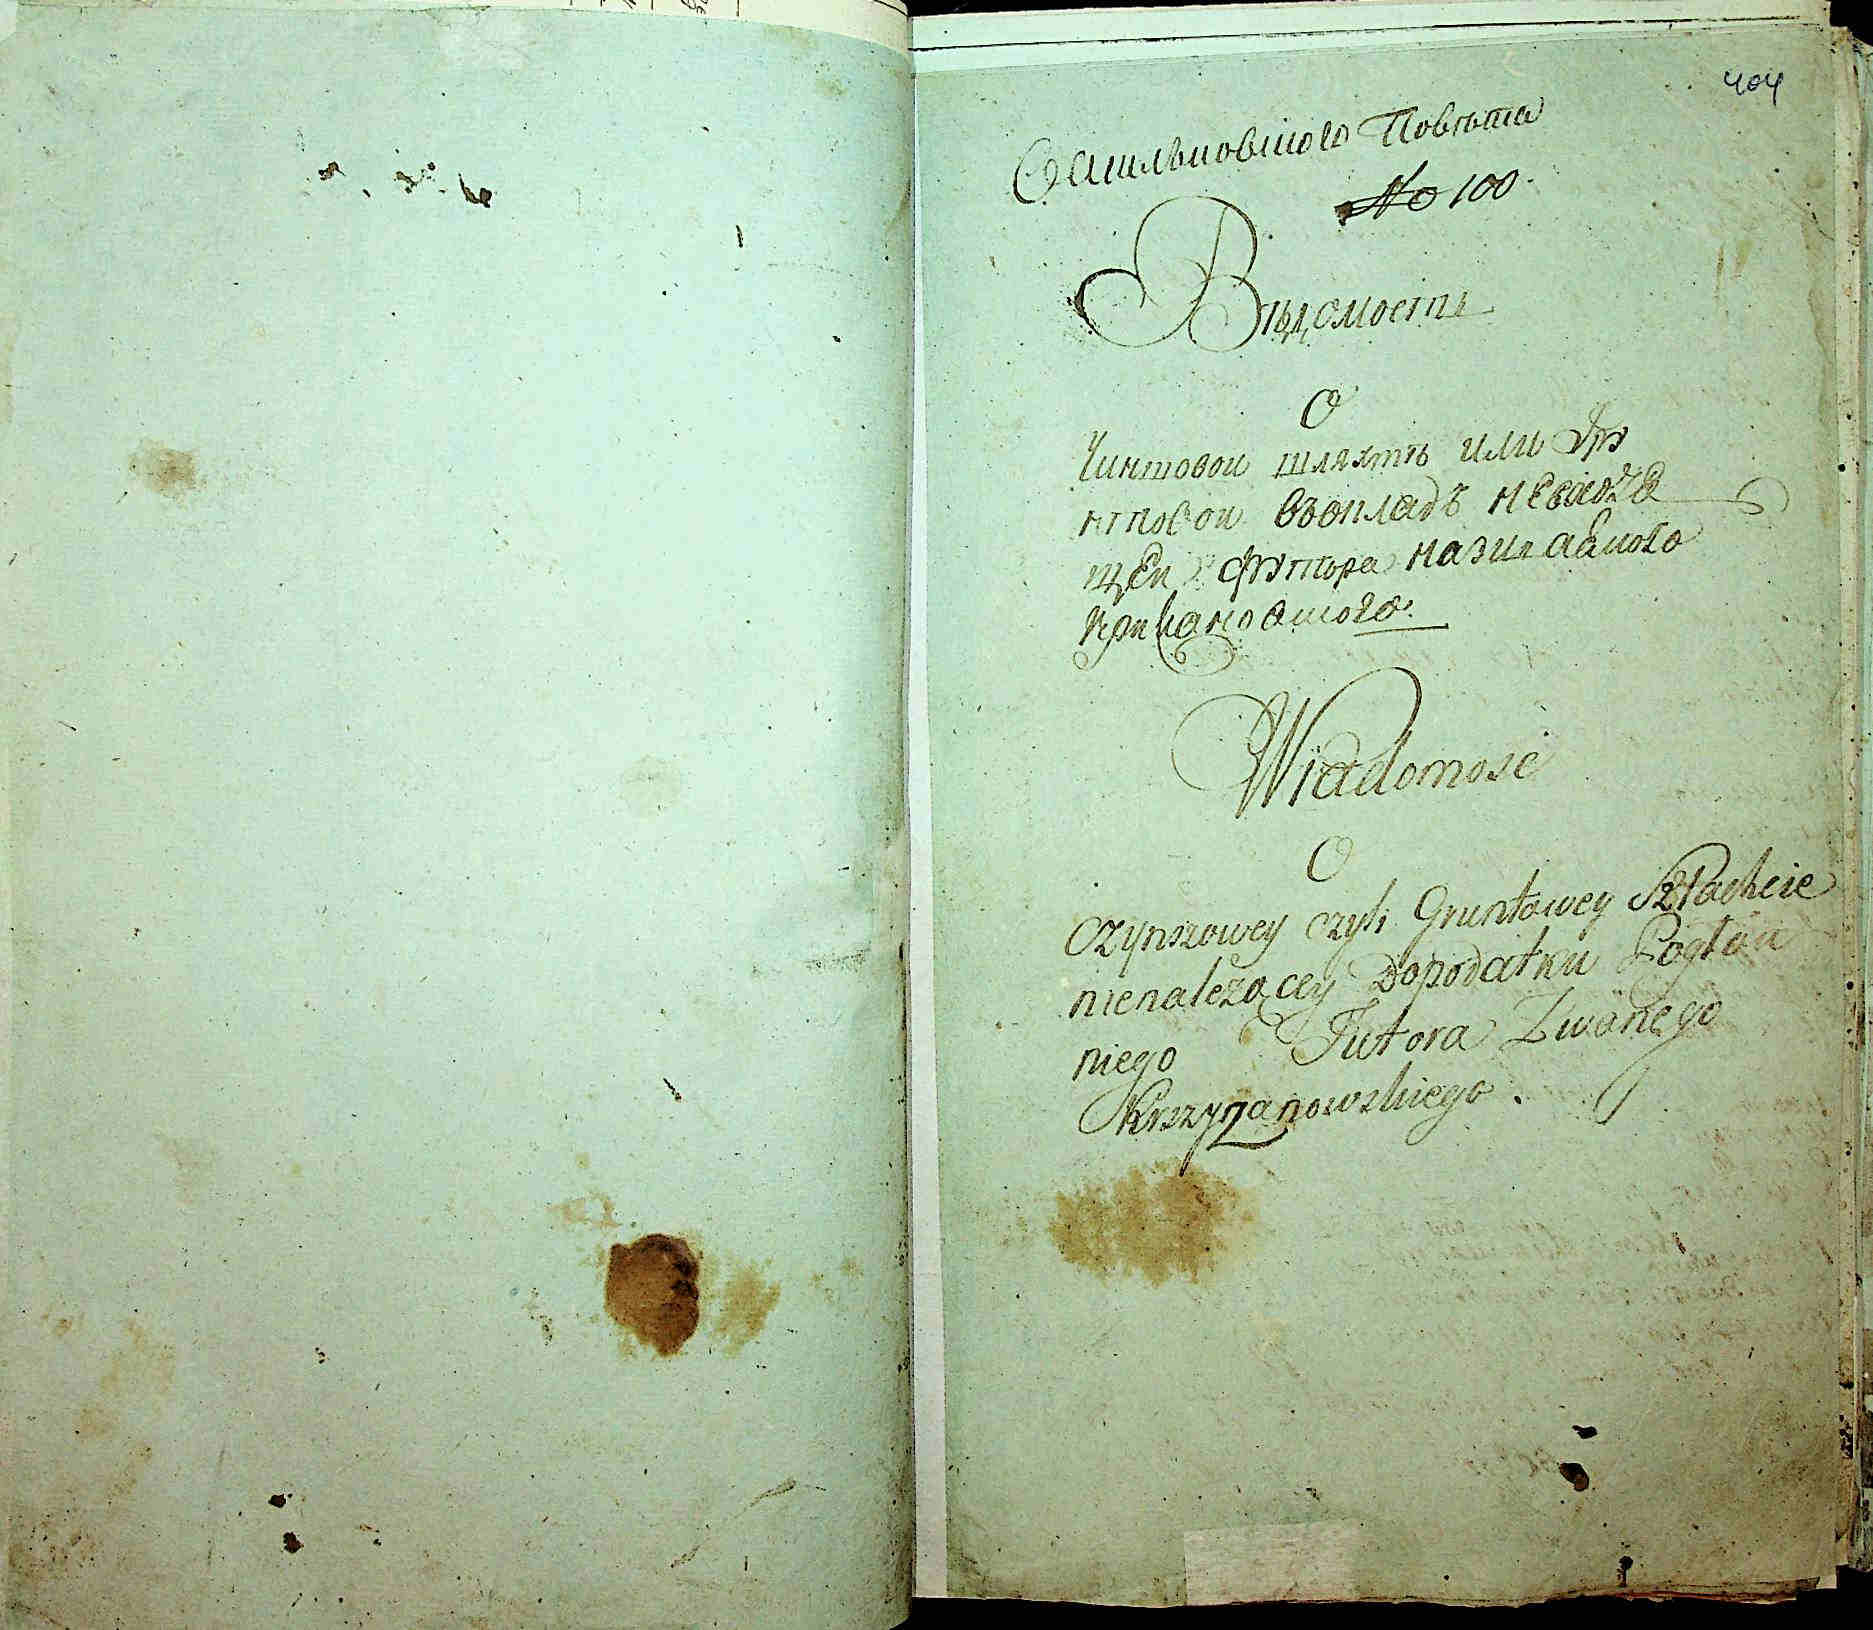 404
Сквильковшого Повѣта
№ 100
Вѣдомость
О
Чиншовои шляхтѣ или Гру
нтовои въокладъ невходя
щеи Футора называемого
Крижановшого.
Wiadomosc
O
Czynszowey czyli Gruntowey Szlachcie
nienalezącey Dopodatku Pogłow
niego Futora Zwanego
Krszyzanowskiego.